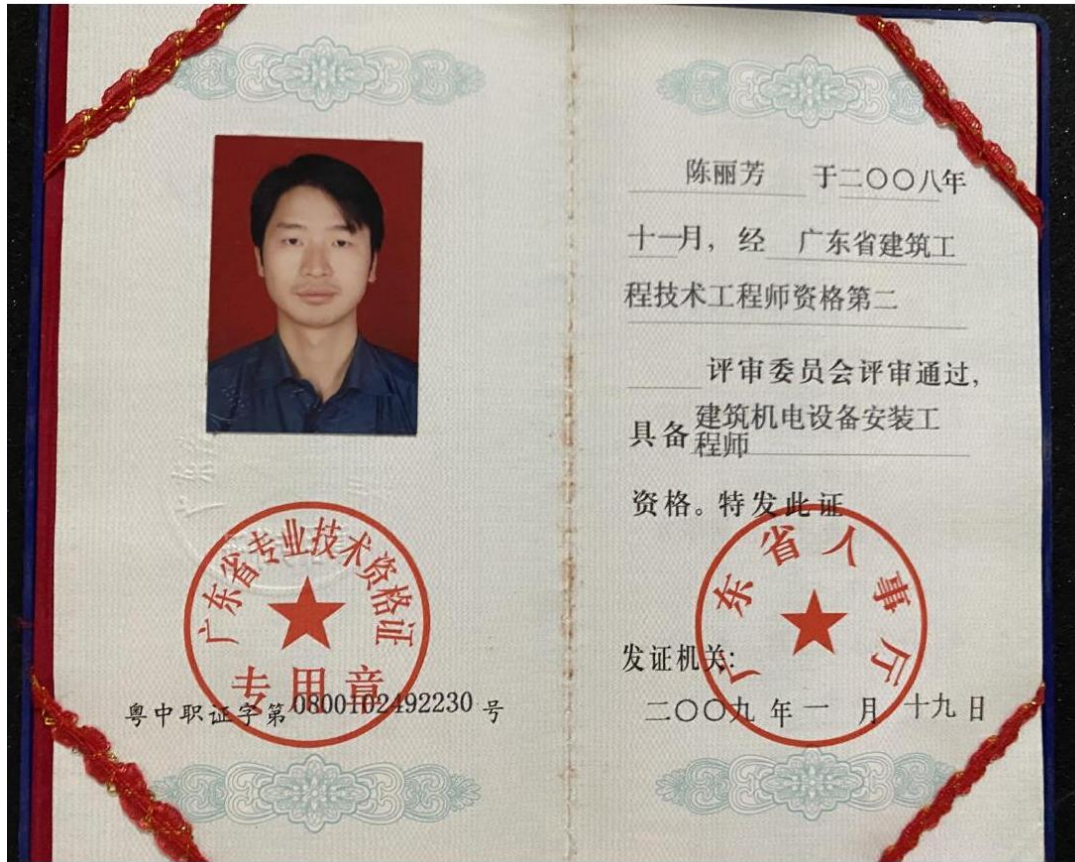 广东省专业技术资格证
专用章
粤中职证字第0800102492230号
陈丽芳 于二〇〇八年
十一月，经 广东省建筑工
程技术工程师资格第二
评审委员会评审通过，
具备 建筑机电设备安装工
程师
资格。特发此证
广东省人事厅
发证机关：
二〇〇九年一月十九日